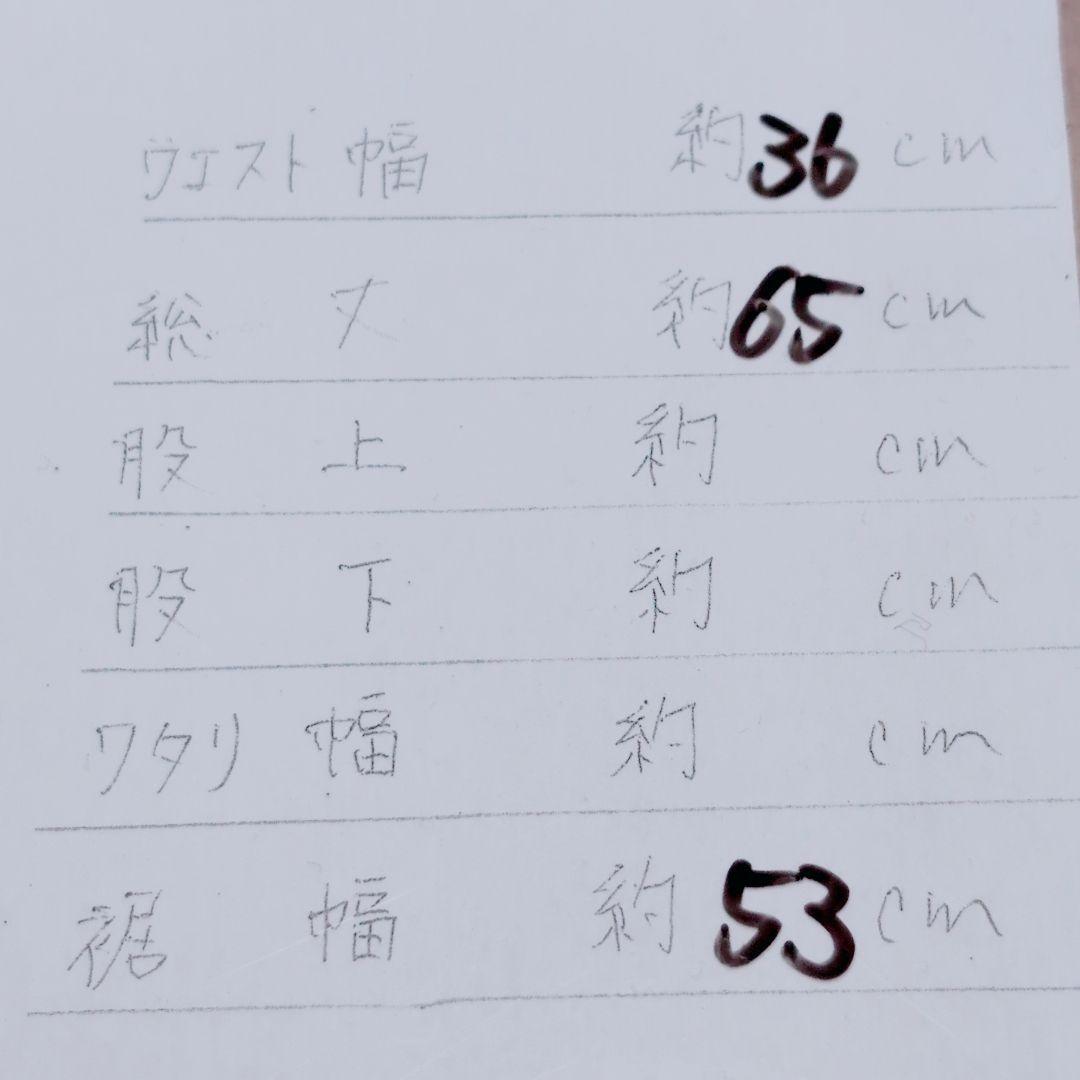 ウエスト幅 約36cm
総丈 約65cm
股上 約 cm
股下 約 cm
ワタリ幅 約 cm
裾幅 約53cm